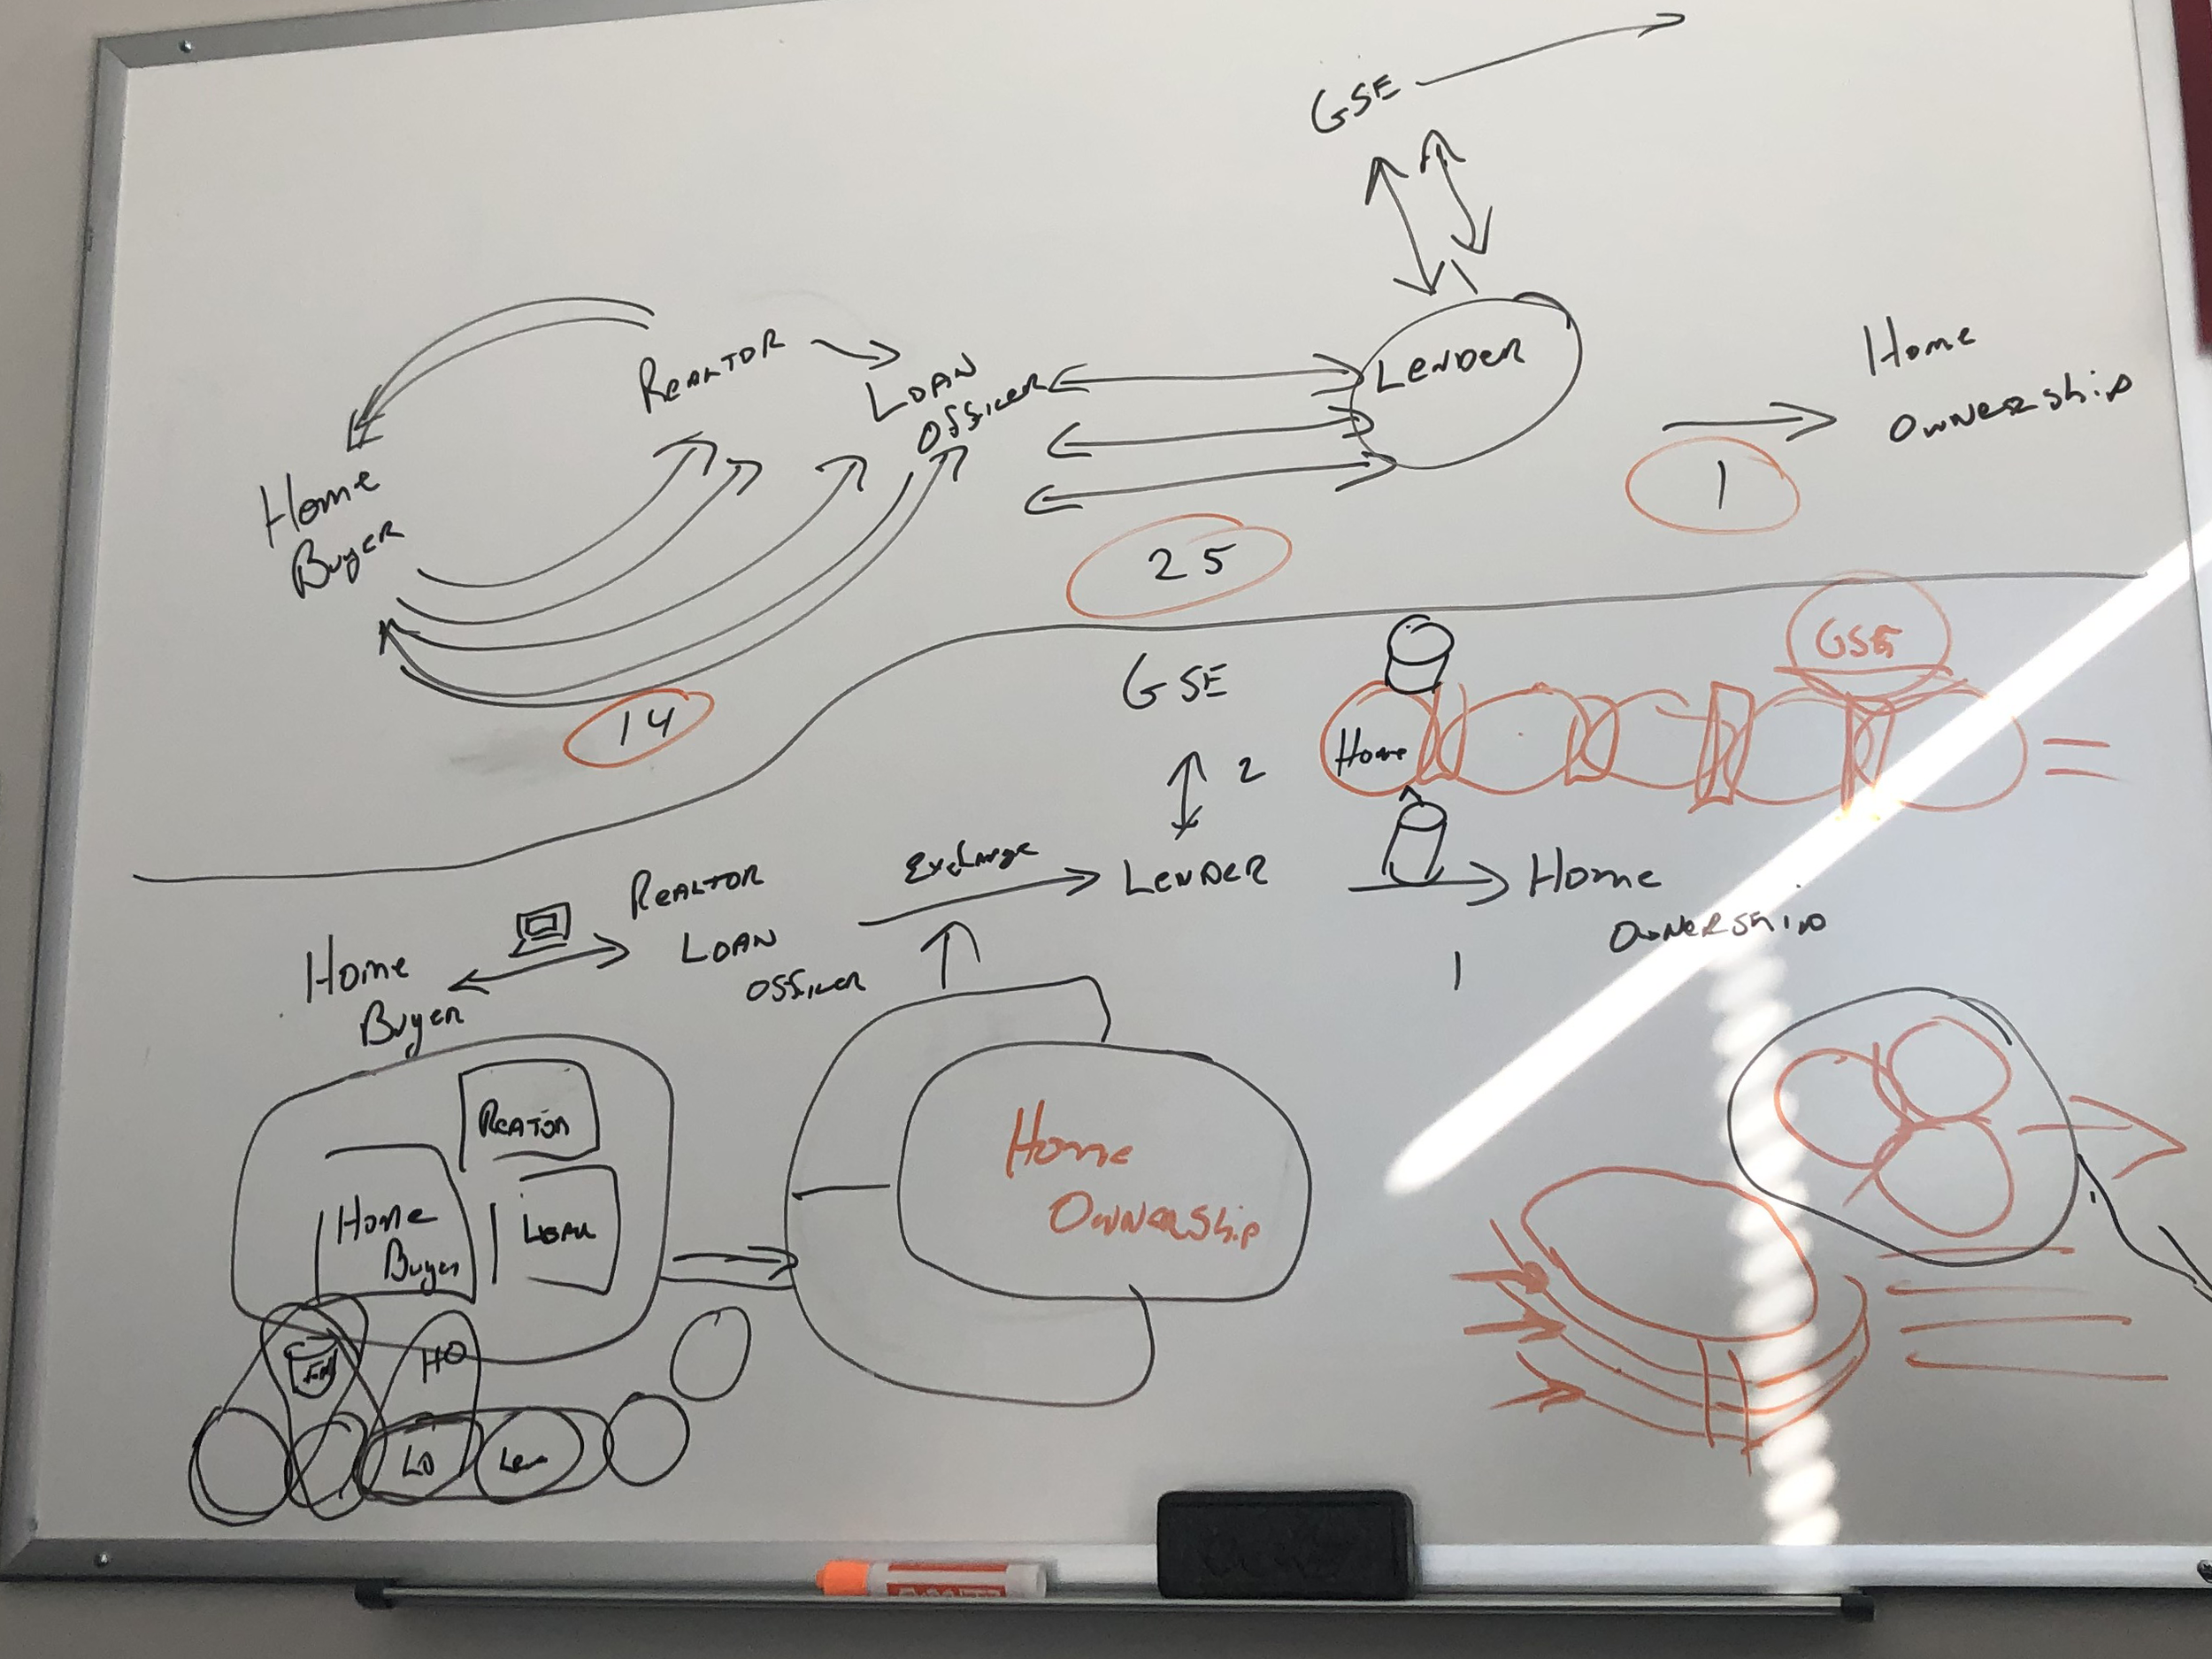 GSE
REALTOR
LOAN
OFFICER
LENDER
Home
OWNERShip
Home
Buyer
1
25
14
GSE
GSE
2
Home
Exchange
REALTOR
LENDER
Home
OWNERShip
LOAN
OFFICER
Home
Buyer
1
REATOR
Home
Buyer
LOAN
Home
OWNERShip
HO
LO
Len